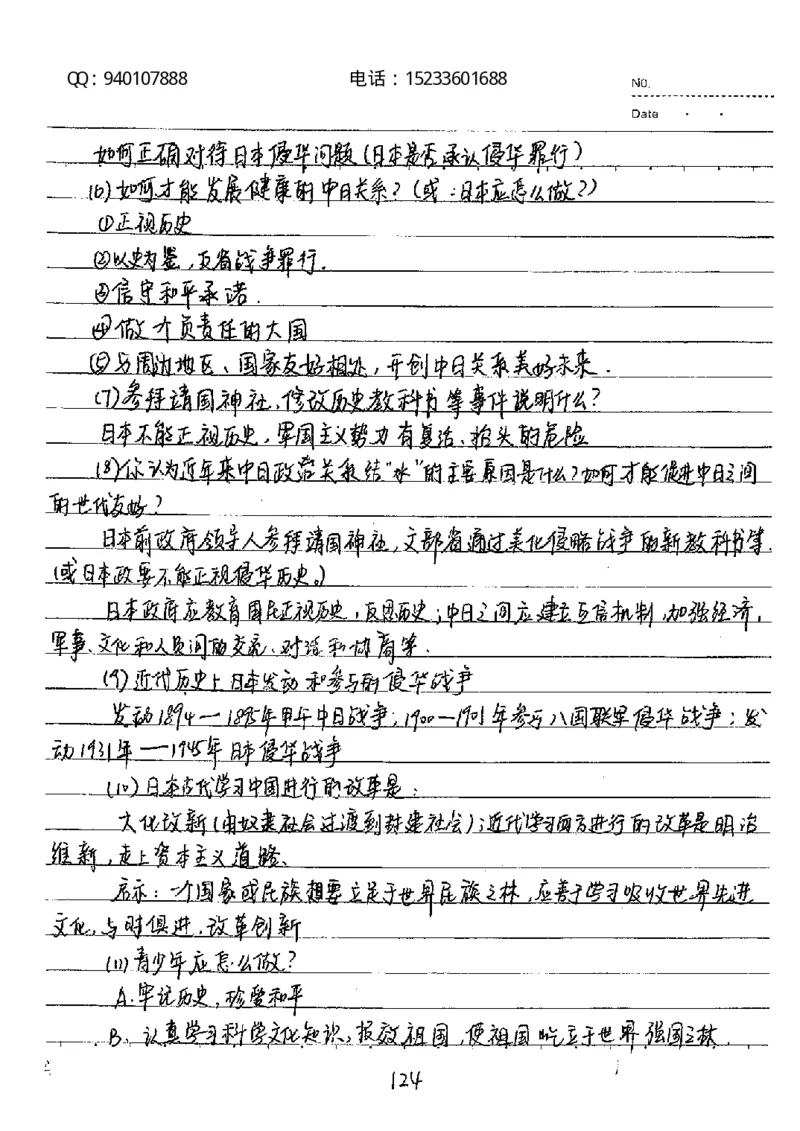 QQ：940107888 电话：15233601688 No.
Date
如何正确对待日本侵华问题(日本是否承认侵华罪行)
(6)如何才能发展健康的中日关系?(或:日本应怎么做?)
①正视历史
②以史为鉴,反省战争罪行.
③信守和平承诺.
④做个负责任的大国
⑤与周边地区、国家友好相处,开创中日关系美好未来.
(7)参拜靖国神社、修改历史教科书等事件说明什么?
日本不能正视历史,军国主义势力有复活、抬头的危险
(8)你认为近年来中日政治关系结"冰"的主要原因是什么?如何才能促进中日之间
的世代友好?
日本前政府领导人参拜靖国神社,文部省通过美化侵略战争的新教科书等.
(或日本政要不能正视侵华历史。)
日本政府应教育国民正视历史,反思历史;中日之间应建立互信机制,加强经济,
军事、文化和人员间的交流、对话和协商等.
(9)近代历史上日本发动和参与的侵华战争
发动1894—1895年甲午中日战争;1900—1901年参与八国联军侵华战争;发
动1931年—1945年日本侵华战争
(10)日本古代学习中国进行的改革是:
大化改新(由奴隶社会过渡到封建社会);近代学习西方进行的改革是明治
维新,走上资本主义道路、
启示:一个国家或民族想要立足于世界民族之林,应善于学习吸收世界先进
文化,与时俱进,改革创新
(11)青少年应怎么做?
A.牢记历史,珍爱和平
B、认真学习科学文化知识,报效祖国,使祖国屹立于世界强国之林.
124